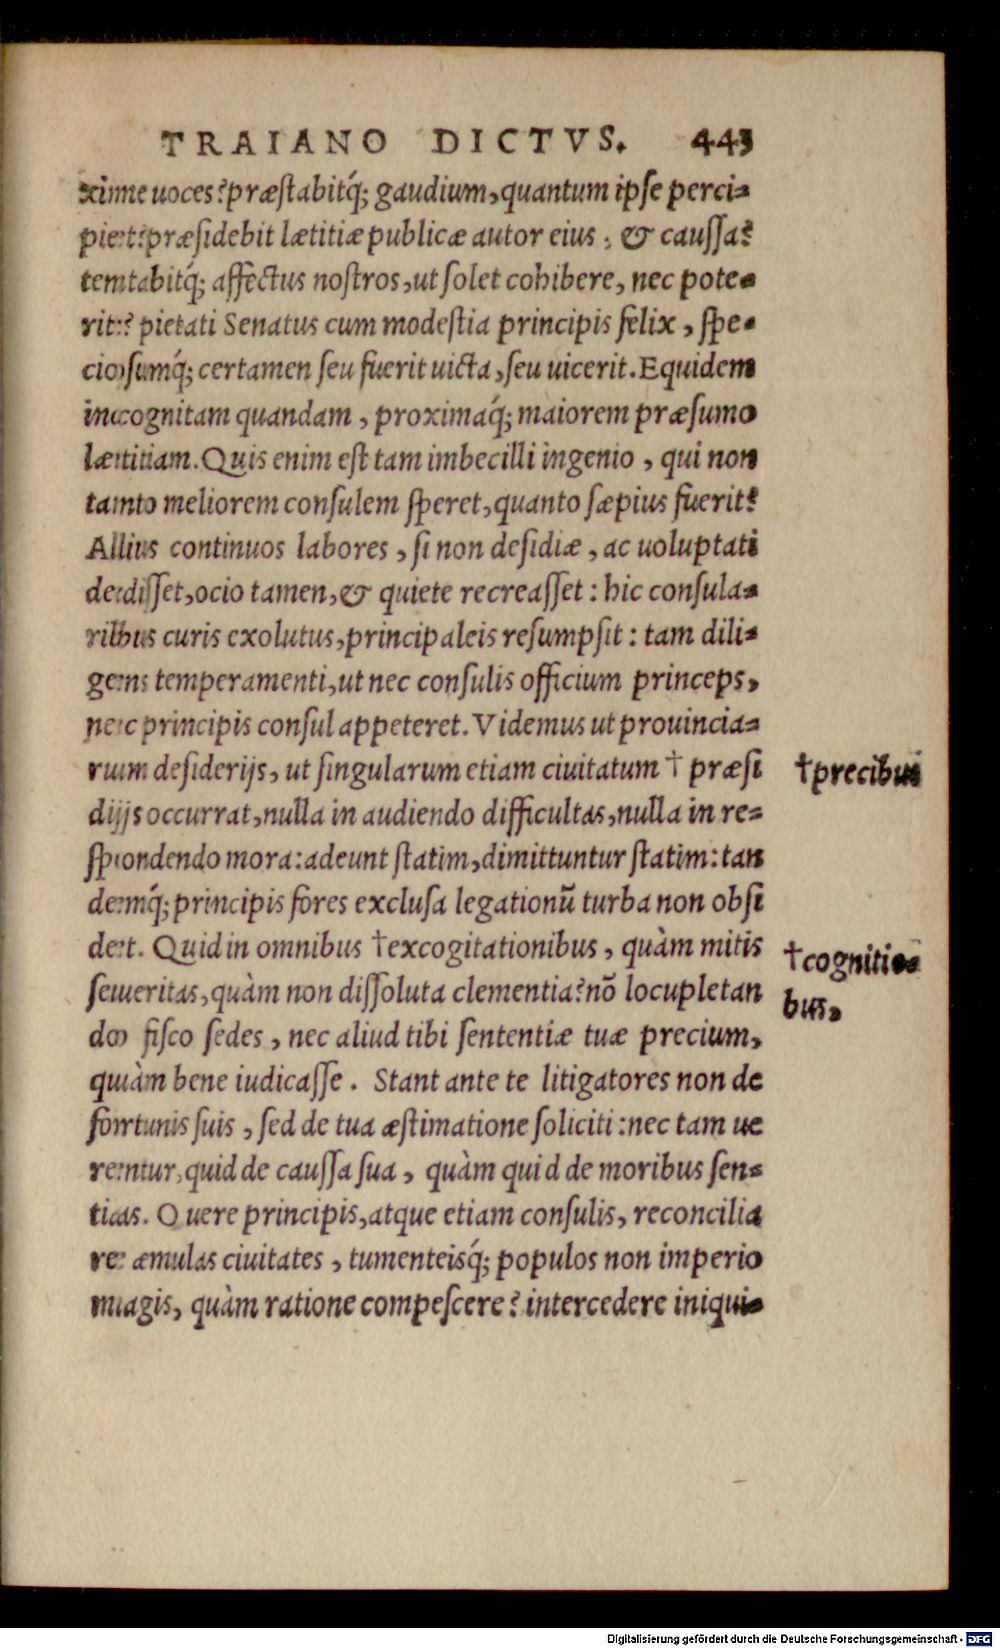 TRAIANO DICTVS. 443
xime uoces? præstabitq́; gaudium, quantum ipse perci=
piet? præsidebit lætitiæ publicæ autor eius, & caussa?
temtabitq́; affectus nostros, ut solet cohibere, nec pote=
rit? pietati Senatus cum modestia principis felix, spe=
ciosumq́; certamen seu fuerit uicta, seu uicerit. Equidem
incognitam quandam, proximaq́; maiorem præsumo
lætitiam. Quis enim est tam imbecilli ingenio, qui non
tanto meliorem consulem speret, quanto sæpius fuerit?
Alius continuos labores, si non desidiæ, ac uoluptati
dedisset, ocio tamen, & quiete recreasset: hic consula=
ribus curis exolutus, principaleis resumpsit: tam dili=
gens temperamenti, ut nec consulis officium princeps,
nec principis consul appeteret. Videmus ut prouincia=
rum desiderijs, ut singularum etiam ciuitatum † præsi
dijs occurrat, nulla in audiendo difficultas, nulla in re=
spondendo mora: adeunt statim, dimittuntur statim: tan
demq́; principis fores exclusa legationũ turba non obsi
det. Quid in omnibus † excogitationibus, quàm mitis
seueritas, quàm non dissoluta clementia? nõ locupletan
do fisco sedes, nec aliud tibi sententiæ tuæ precium,
quàm bene iudicasse. Stant ante te litigatores non de
fortunis suis, sed de tua æstimatione soliciti: nec tam ue
rentur, quid de caussa sua, quàm quid de moribus sen=
tias. O uere principis, atque etiam consulis, reconcilia
re æmulas ciuitates, tumenteisq́; populos non imperio
magis, quàm ratione compescere? intercedere iniqui=
† precibus
† cognitio=
bus.
Digitalisierung gefördert durch die Deutsche Forschungsgemeinschaft - DFG